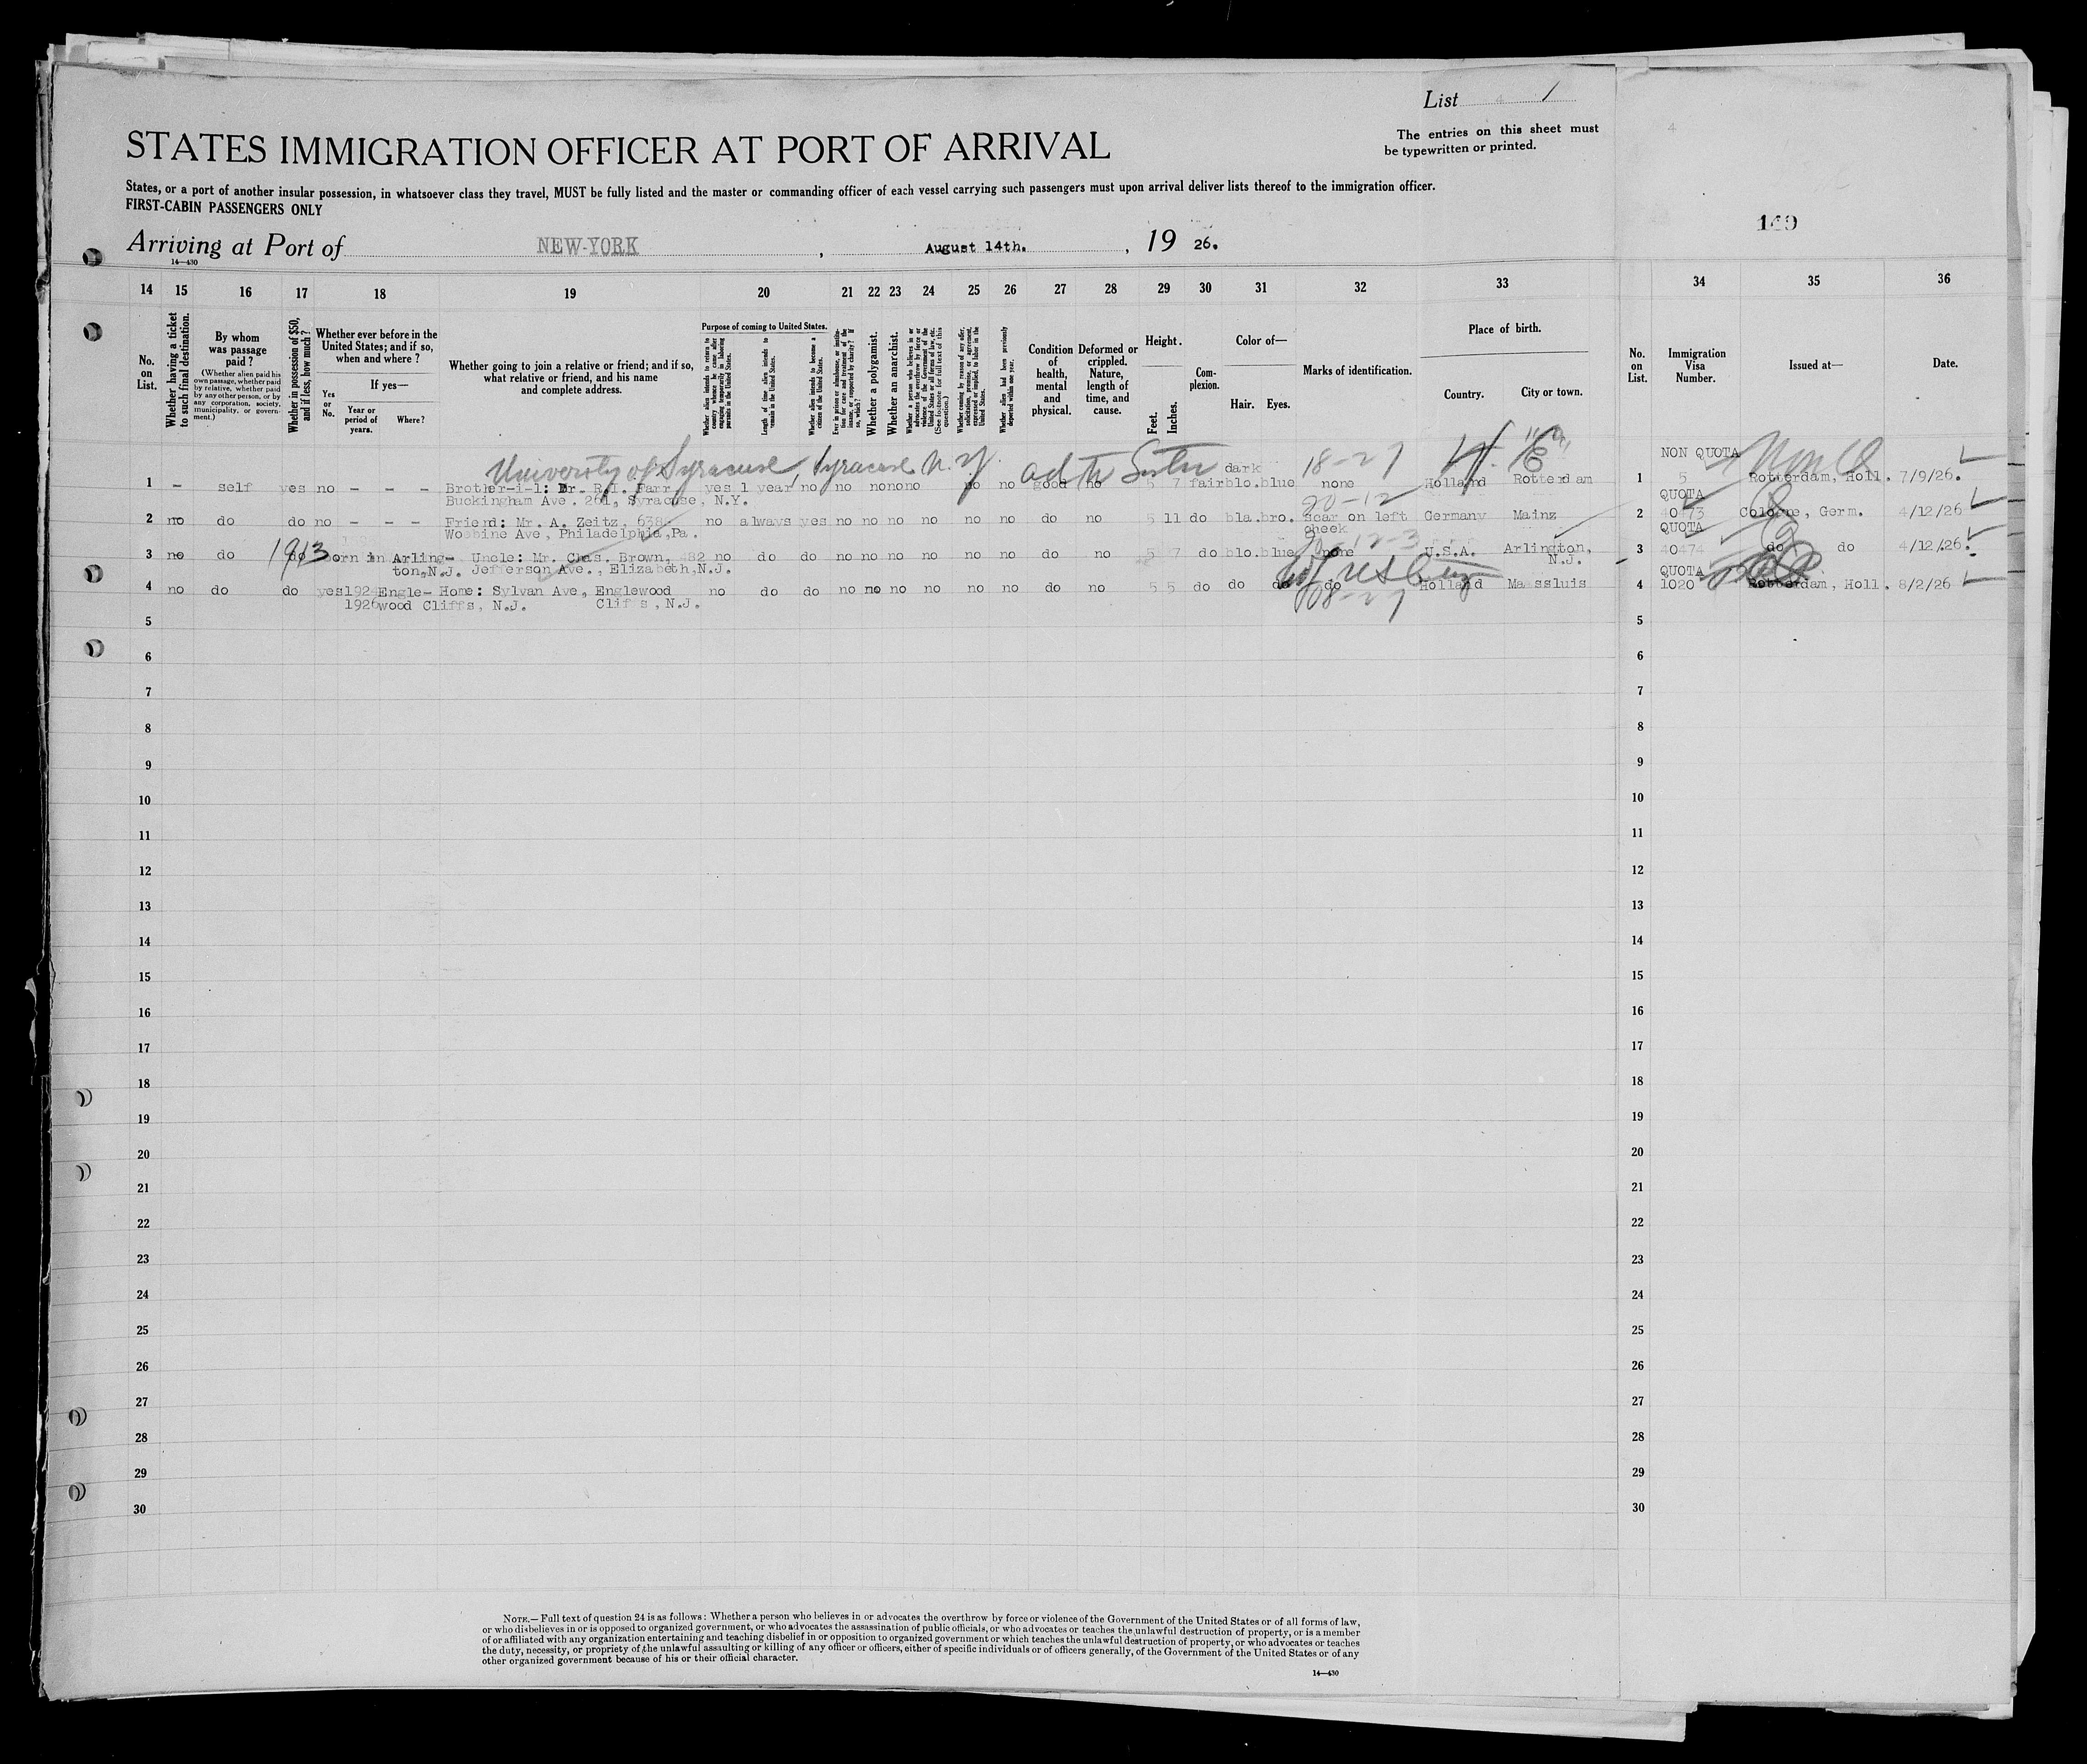 List 1
The entries on this sheet must
be typewritten or printed.
STATES IMMIGRATION OFFICER AT PORT OF ARRIVAL
States, or a port of another insular possession, in whatsoever class they travel, MUST be fully listed and the master or commanding officer of each vessel carrying such passengers must upon arrival deliver lists thereof to the immigration officer.
FIRST-CABIN PASSENGERS ONLY
149
Arriving at Port of NEW-YORK, August 14th., 19 26.
14—430
14 15 16 17 18 19 20 21 22 23 24 25 26 27 28 29 30 31 32 33 34 35 36
No. on List.
Whether having a ticket to such final destination.
By whom was passage paid?
(Whether alien paid his own passage, whether paid by relative, whether paid by any other person, or by any corporation, society, municipality, or government.)
Whether in possession of $50, and if less, how much?
Whether ever before in the United States; and if so, when and where?
Yes or No.
If yes—
Year or period of years.
Where?
Whether going to join a relative or friend; and if so, what relative or friend, and his name and complete address.
Purpose of coming to United States.
Whether alien intends to return to country whence he came after engaging temporarily in laboring pursuits in the United States.
Length of time alien intends to remain in the United States.
Whether alien intends to become a citizen of the United States.
Ever in prison or almshouse, or institution for care and treatment of the insane, or supported by charity? If so, which?
Whether a polygamist.
Whether an anarchist.
Whether a person who believes in or advocates the overthrow by force or violence of the Government of the United States or all forms of law, etc. (See footnote for full text of this question.)
Whether coming by reason of any offer, solicitation, promise, or agreement, expressed or implied, to labor in the United States.
Whether alien had been previously deported within one year.
Condition of health, mental and physical.
Deformed or crippled. Nature, length of time, and cause.
Height.
Feet.
Inches.
Complexion.
Color of—
Hair. Eyes.
Marks of identification.
Place of birth.
Country.
City or town.
No. on List.
Immigration Visa Number.
Issued at—
Date.
University of Syracuse, Syracuse N.Y. dark 18-27 NON QUOTA
1 - self yes no - - - Brother-i-l: Dr. R.I. Farr yes 1 year no no no no no no no good no 5 7 fair blo. blue none Holland Rotterdam 1 5 Rotterdam, Holl. 7/9/26.
Buckingham Ave. 261, Syracuse, N.Y. 20-12 QUOTA
2 no do do no - - - Friend: Mr. A. Zeitz, 638 no always yes no no no no no no do no 5 11 do bla. bro. scar on left Germany Mainz 2 40473 Cologne, Germ. 4/12/26
Wosbine Ave, Philadelphia, Pa. cheek QUOTA
1913
3 no do do born in Arling- Uncle: Mr. Chas. Brown, 482 no do do no no no no no no do no 5 7 do blo. blue none U.S.A. Arlington, 3 40474 do do 4/12/26.
ton, N.J. Jefferson Ave., Elizabeth, N.J. N.J. QUOTA
4 no do do yes 192 Engle- Home: Sylvan Ave, Englewood no do do no no no no no no do no 5 5 do do do do Holland Maassluis 4 1020 Rotterdam, Holl. 8/2/26
1926 wood Cliffs, N.J. Cliffs, N.J. 08-27
5 5
6 6
7 7
8 8
9 9
10 10
11 11
12 12
13 13
14 14
15 15
16 16
17 17
18 18
19 19
20 20
21 21
22 22
23 23
24 24
25 25
26 26
27 27
28 28
29 29
30 30
NOTE.—Full text of question 24 is as follows: Whether a person who believes in or advocates the overthrow by force or violence of the Government of the United States or of all forms of law,
or who disbelieves in or is opposed to organized government, or who advocates the assassination of public officials, or who advocates or teaches the unlawful destruction of property, or is a member
of or affiliated with any organization entertaining and teaching disbelief in or opposition to organized government or which teaches the unlawful destruction of property, or who advocates or teaches
the duty, necessity, or propriety of the unlawful assaulting or killing of any officer or officers, either of specific individuals or of officers generally, of the Government of the United States or of any
other organized government because of his or their official character.
14—430